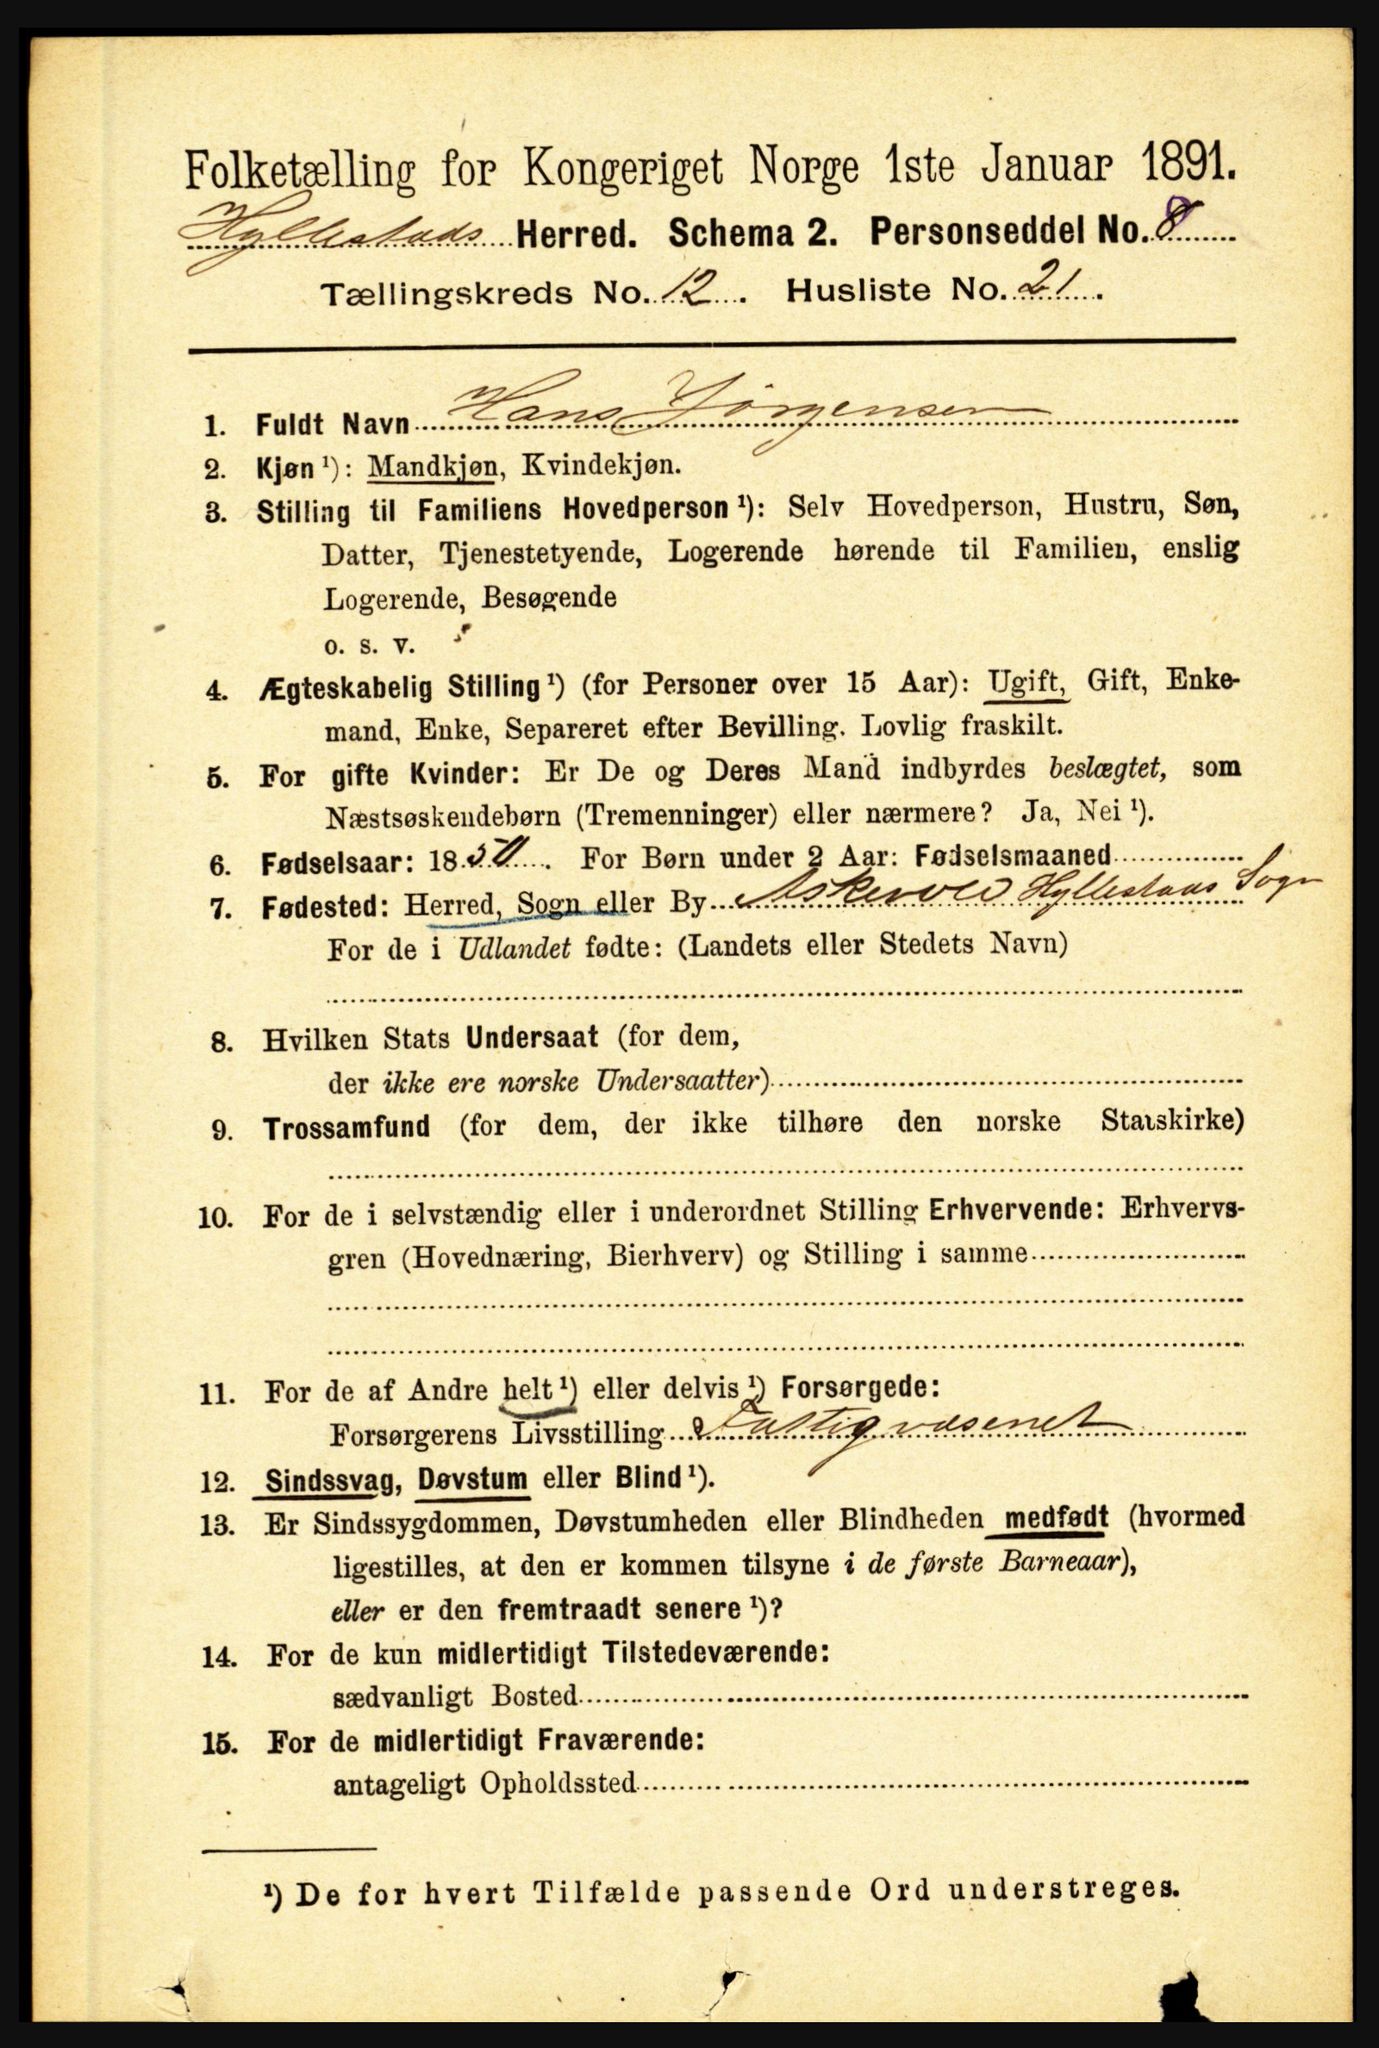 Folketælling for Kongeriget Norge 1ste Januar 1891.
Hyllestads Herred. Schema 2. Personseddel No. 8
Tællingskreds No. 12. Husliste No. 21.
1. Fuldt Navn Hans Jørgensen
2. Kjøn ¹): Mandkjøn, Kvindekjøn.
3. Stilling til Familiens Hovedperson ¹): Selv Hovedperson, Hustru, Søn,
Datter, Tjenestetyende, Logerende hørende til Familien, enslig
Logerende, Besøgende
o. s. v.
4. Ægteskabelig Stilling ¹) (for Personer over 15 Aar): Ugift, Gift, Enke-
mand, Enke, Separeret efter Bevilling. Lovlig fraskilt.
5. For gifte Kvinder: Er De og Deres Mand indbyrdes beslægtet, som
Næstsøskendebørn (Tremenninger) eller nærmere? Ja, Nei ¹).
6. Fødselsaar: 1850. For Børn under 2 Aar: Fødselsmaaned
7. Fødested: Herred, Sogn eller By Askevold Hyllestads Sogn
For de i Udlandet fødte: (Landets eller Stedets Navn)
8. Hvilken Stats Undersaat (for dem,
der ikke ere norske Undersaatter)
9. Trossamfund (for dem, der ikke tilhøre den norske Statskirke)
10. For de i selvstændig eller i underordnet Stilling Erhvervende: Erhvervs-
gren (Hovednæring, Bierhverv) og Stilling i samme
11. For de af Andre helt ¹) eller delvis ¹) Forsørgede:
Forsørgerens Livsstilling Fattigvæsenet
12. Sindssvag, Døvstum eller Blind ¹).
13. Er Sindssygdommen, Døvstumheden eller Blindheden medfødt (hvormed
ligestilles, at den er kommen tilsyne i de første Barneaar),
eller er den fremtraadt senere ¹)?
14. For de kun midlertidigt Tilstedeværende:
sædvanligt Bosted
15. For de midlertidigt Fraværende:
antageligt Opholdssted
¹) De for hvert Tilfælde passende Ord understreges.